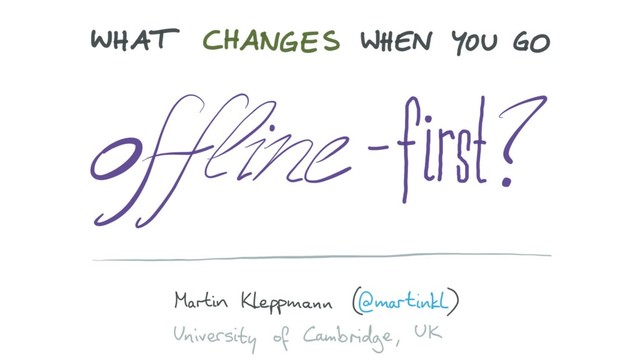 WHAT CHANGES WHEN YOU GO
offline-first?
Martin Kleppmann (@martinkl)
University of Cambridge, UK